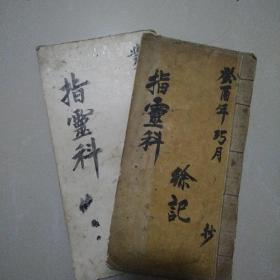 癸酉年巧月
指靈科
徐記
抄
指靈科